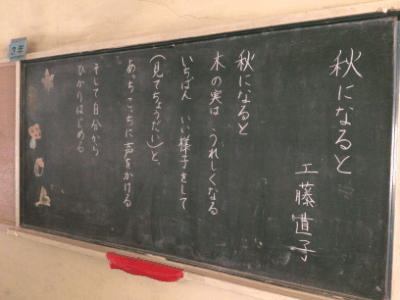 秋になると
工藤直子
秋になると
木の実は うれしくなる
いちばん いい様子をして
(見てちょうだい)と、
あっちこちに声をかける
そして自分から
ひかりはじめる